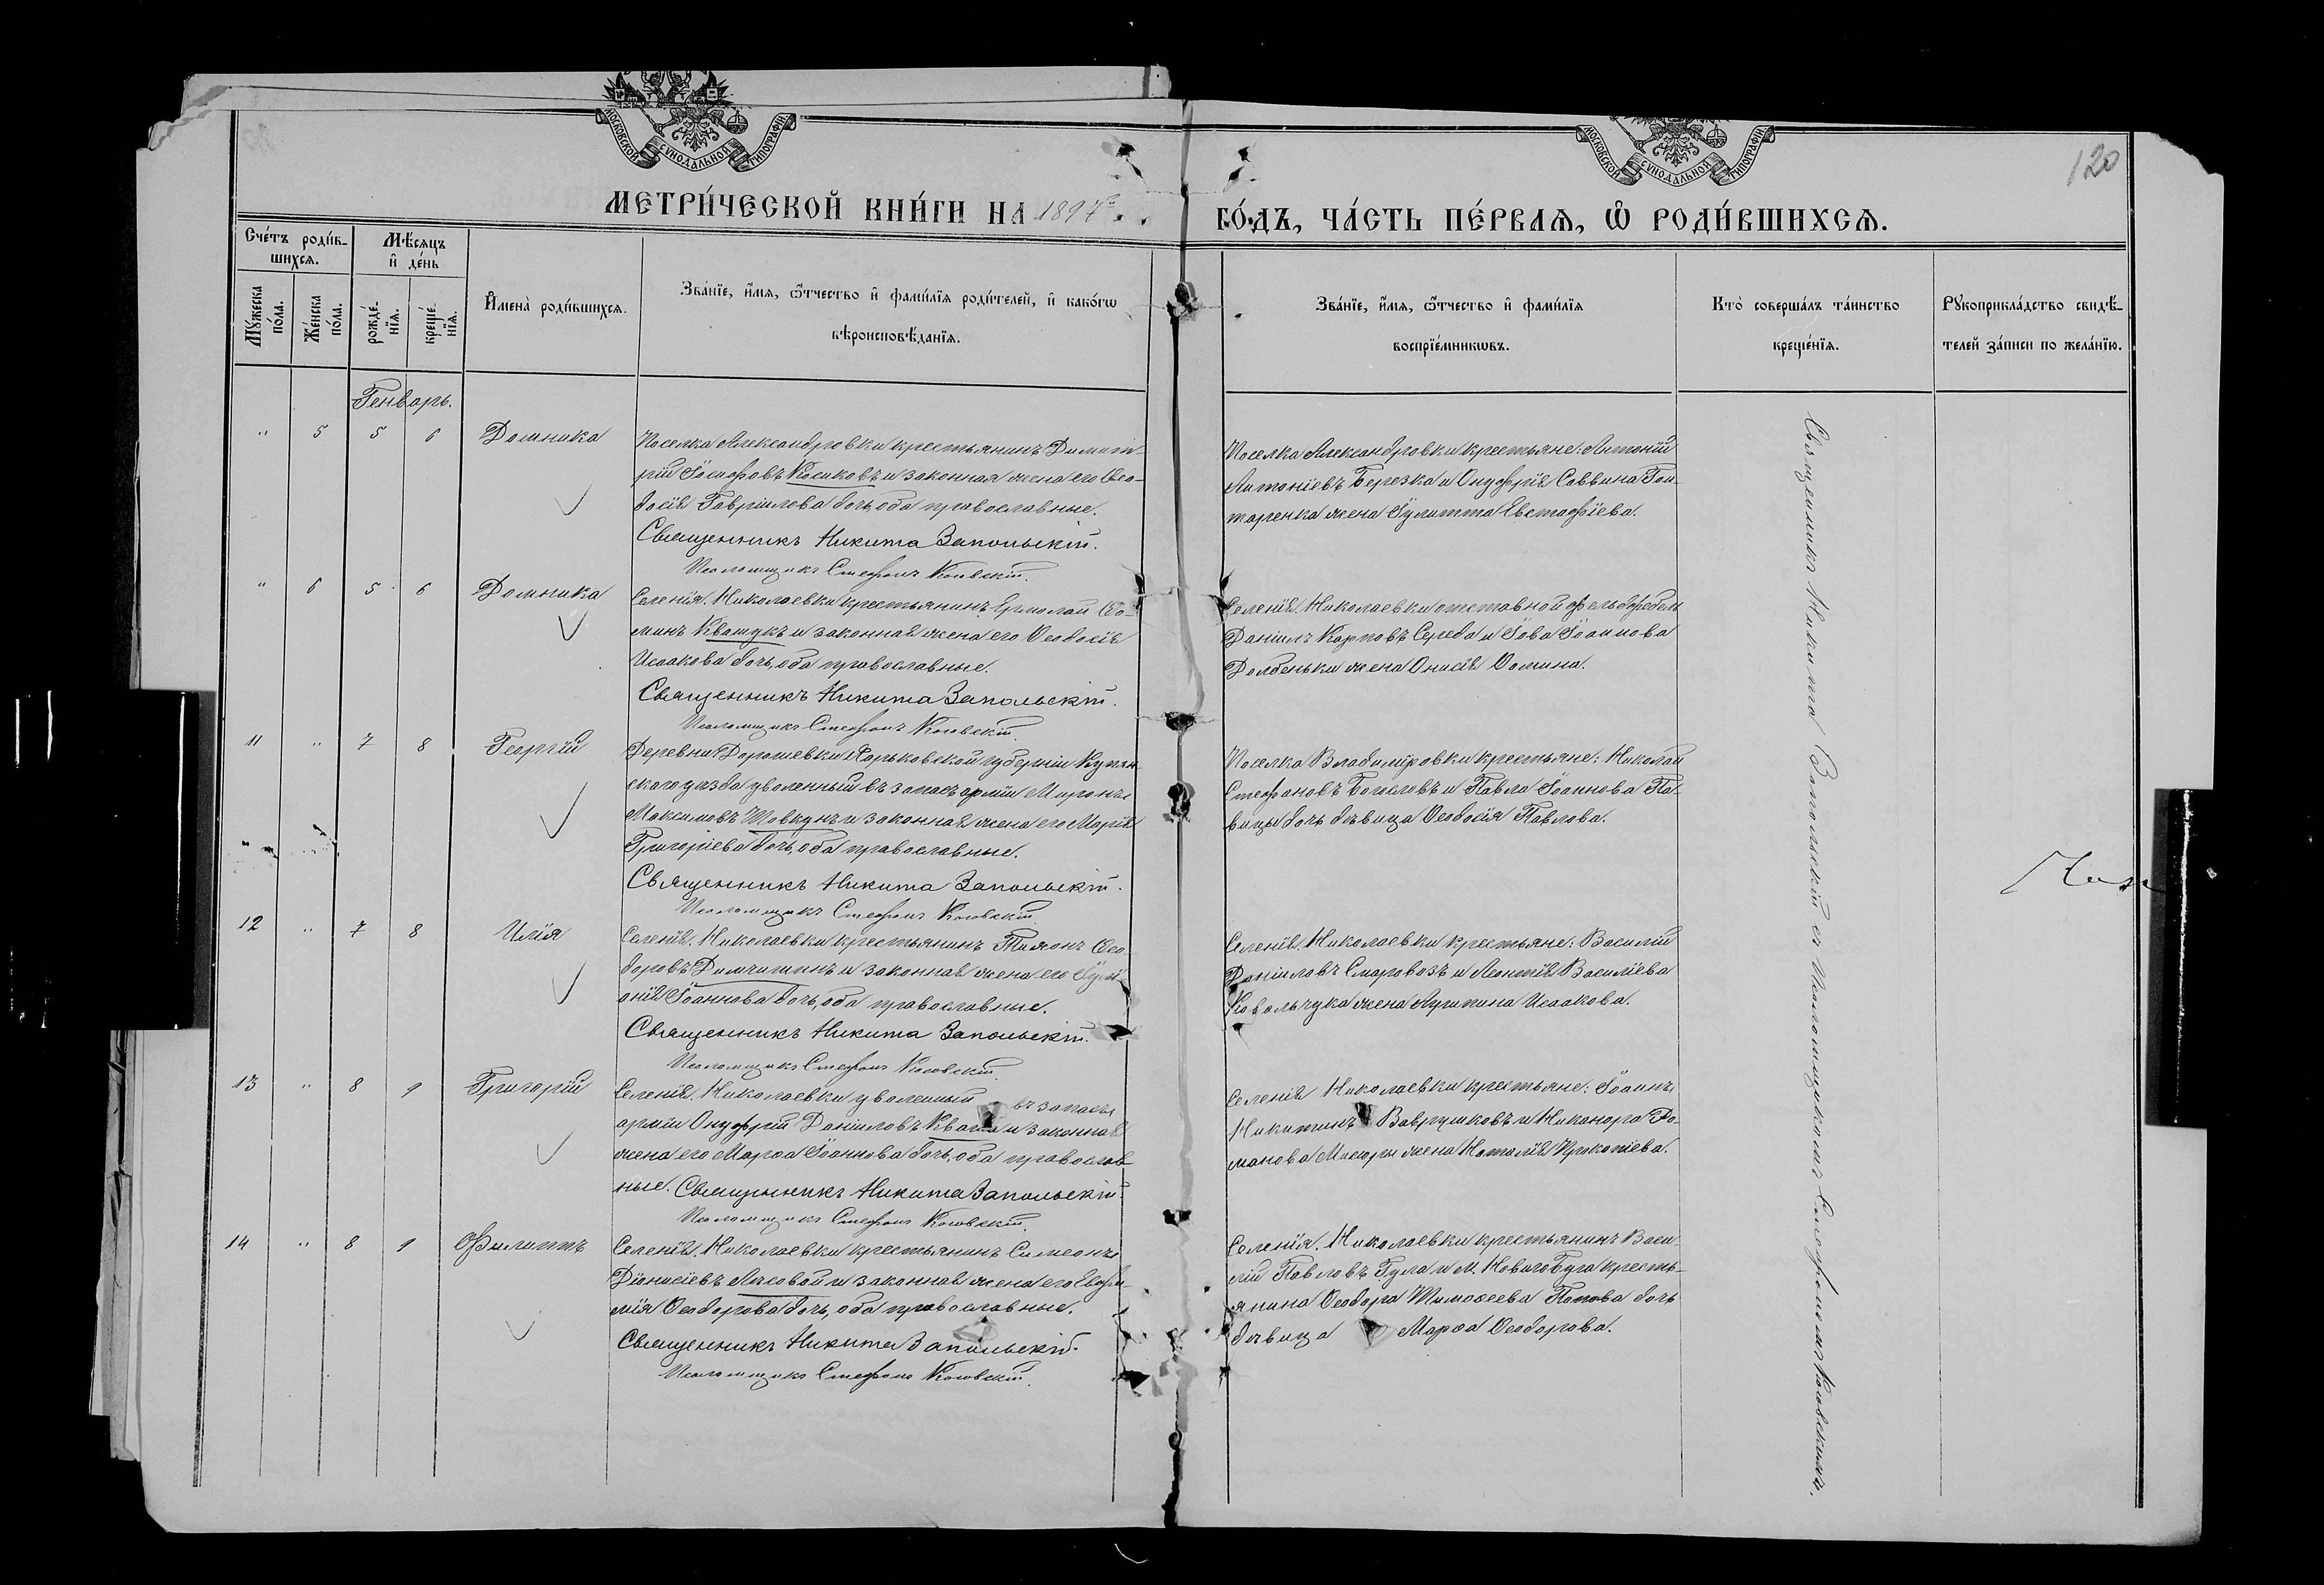 МОСКОВСКОЙ СУНОДАЛЬНОЙ ТИПОГРАФІИ
МОСКОВСКОЙ СУНОДАЛЬНОЙ ТИПОГРАФІИ
120
МЕТРИ́ЧЕСКОЙ КНИ́ГИ НА 1897 г.
ГО́ДЪ, ЧА́СТЬ ПЕ́РВАѦ, Ѡ҆ РОДИ́ВШИХСѦ.
Сче́тъ роди́в-
шихсѧ.
Мѣ́сѧцъ
и҆ де́нь
Мꙋ́жеска
по́ла.
Же́нска
по́ла.
рожде́-
нїѧ.
креще́-
нїѧ.
И҆мена̀ роди́вшихсѧ.
Зва́нїе, и҆́мѧ, ѻ҆́тчество и҆ фами́лїѧ роди́телей, и҆ како́гѡ
вѣроисповѣ́данїѧ.
Зва́нїе, и҆́мѧ, ѻ҆́тчество и҆ фами́лїѧ
воспрїе́мникѡвъ.
Кто̀ соверша́лъ та́инство
креще́нїѧ.
Рꙋкоприкла́дство свидѣ́-
телей за́писи по жела́нїю.
Генварь.
" 5 5 6 Домника
Поселка Александровки крестьянинъ Димит-
рій Іосифовъ Косиковъ и законная жена его Ѳео-
досія Гавріилова дочь, оба православные.
Священникъ Никита Запольскій.
Псаломщикъ Стефанъ Косовскій.
Поселка Александровки крестьяне: Антоній
Антоніевъ Березка и Онуфрія Саввина Гон-
таренка жена Іулитта Евстафіева.
" 6 5 6 Домника
Селенія Николаевки крестьянинъ Ермолай Ѳо-
минъ Квашукъ и законная жена его Ѳеодосія
Исаакова дочь, оба православные.
Священникъ Никита Запольскій.
Псаломщикъ Стефанъ Косовскій.
Селенія Николаевки отставной фельдфебель
Даніилъ Карповъ Середа и Іова Іоаннова
Долбеньки жена Онисія Ѳомина.
11 " 7 8 Георгій
Деревни Дорошевки Харьковской губерніи Купян-
скаго уѣзда уволенный въ запасъ арміи Миронъ
Максимовъ Шовкунъ и законная жена его Марія
Григоріева дочь, оба православные.
Священникъ Никита Запольскій.
Псаломщикъ Стефанъ Косовскій.
Поселка Владиміровки крестьяне: Николай
Стефановъ Богословъ и Павла Іоаннова Па-
вицы дочь дѣвица Ѳеодосія Павлова.
12 " 7 8 Илія
Селенія Николаевки крестьянинъ Тимонъ Ѳео-
доровъ Димчишинъ и законная жена его Іулі-
анія Іоаннова дочь, оба православные.
Священникъ Никита Запольскій.
Псаломщикъ Стефанъ Косовскій.
Селенія Николаевки крестьяне: Василій
Даніиловъ Смаровозъ и Леонтія Василіева
Ковальчука жена Агрипина Исаакова.
13 " 8 9 Григорій
Селенія Николаевки уволенный въ запасъ
арміи Онуфрій Даніиловъ Кваша и законная
жена его Марѳа Іоаннова дочь, оба православ-
ные. Священникъ Никита Запольскій.
Псаломщикъ Стефанъ Косовскій.
Селенія Николаевки крестьяне: Іоаннъ
Никитинъ Ваврушковъ и Никанора Ро-
манова Мисюры жена Наталія Прокопіева.
14 " 8 9 Филиппъ
Селенія Николаевки крестьянинъ Симеонъ
Діонисіевъ Лясовой и законная жена его Евфи-
мія Ѳеодорова дочь, оба православные.
Священникъ Никита Запольскій.
Псаломщикъ Стефанъ Косовскій.
Селенія Николаевки крестьянинъ Васи-
лій Павловъ Гула и м. Новаго Буга кресть-
янина Ѳеодора Тимоѳеева Попова дочь
дѣвица Марѳа Ѳеодорова.
Священникъ Никита Запольскій съ Псаломщикомъ Стефаномъ Косовскимъ.